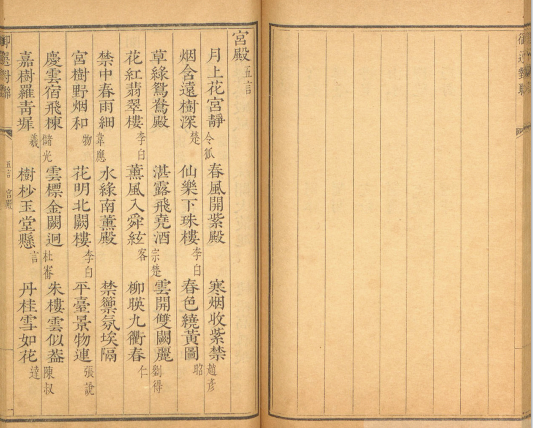 宮殿 五言
月上花宮靜 令狐 春風開紫殿 寒烟收紫禁 趙彥
烟含遠樹深 楚 仙樂下珠樓 李白 春色繞黃圖 昭
草綠鴛鴦殿 湛露飛堯酒 宗楚 雲開雙闕麗 劉得
花紅翡翠樓 李白 薰風入舜絃 客 柳暎九衢春 仁
禁中春雨細 韋應 水綠南薰殿 禁籞氛埃隔
宮樹野烟和 物 花明北闕樓 李白 平臺景物連 張說
慶雲宿飛棟 儲光 雲標金闕迥 杜審 朱樓雲似蓋 陳叔
嘉樹羅青墀 羲 樹杪玉堂懸 言 丹桂雪如花 逵
五言 宮殿